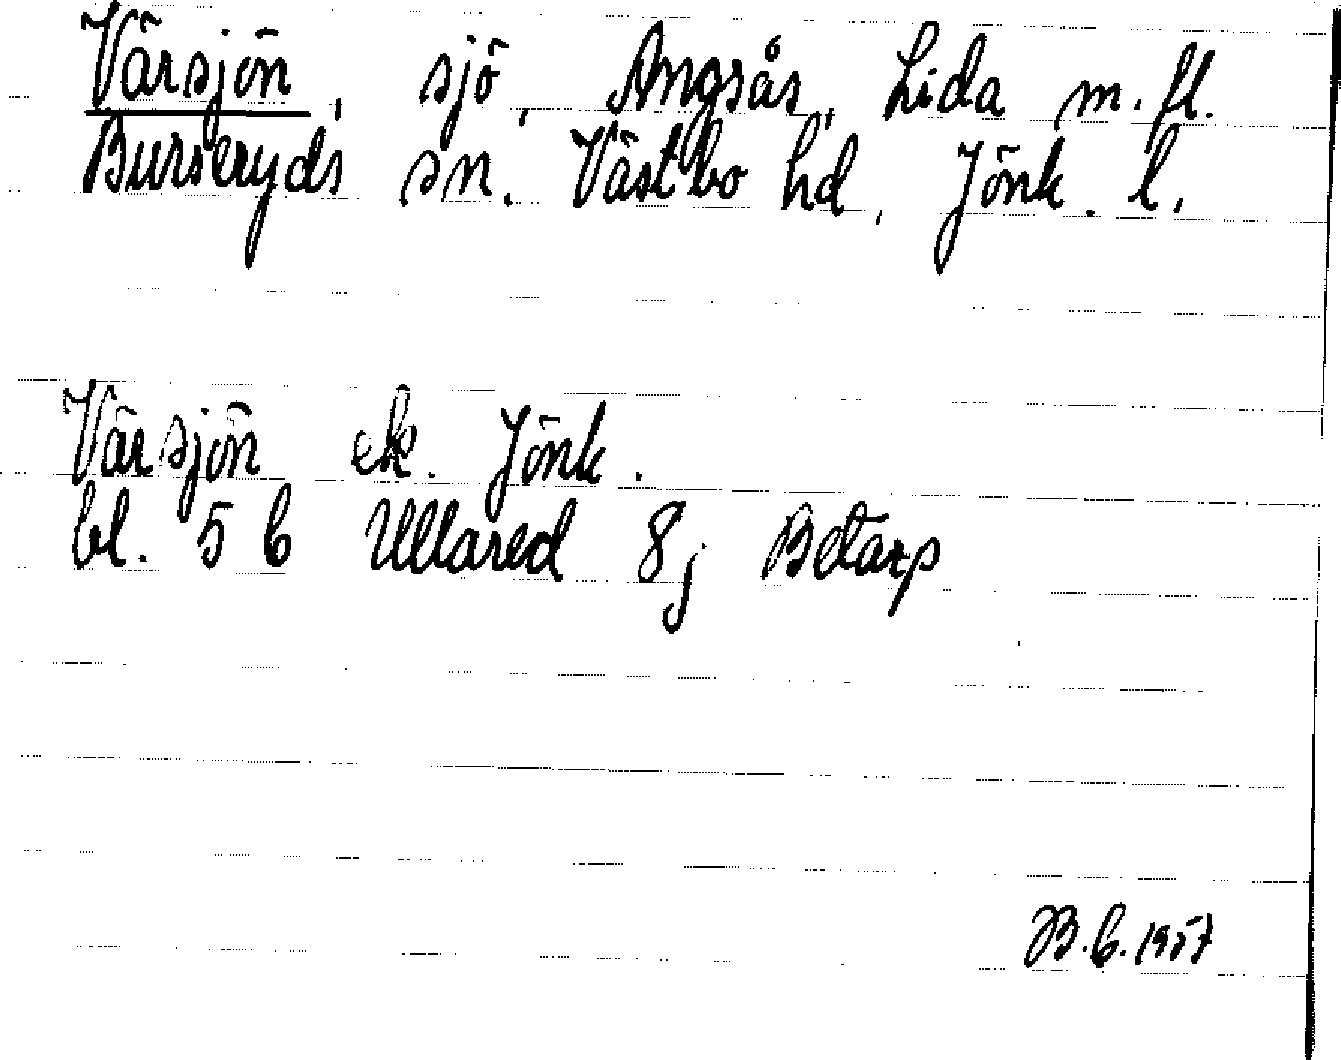 Värsjön, sjö, Angsås, Lida m. fl.
Burseryds sn. Västbo hd, Jönk. l.
Värsjön ek. Jönk.
bl. 5 6 Ullared 8j Betarp
B. 1957